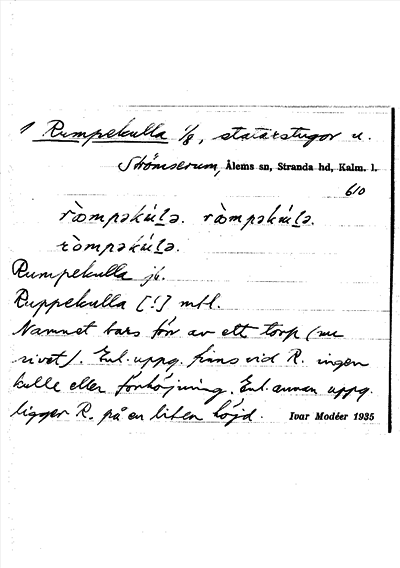 1 Rumpekulla 1/8, statarstugor u.
Strömserum, Ålems sn, Stranda hd, Kalm. l.
610
ròmpəkúl̲ə. ròmpəkúl̲ə.
ròmpəkúl̲ə.
Rumpekulla jb.
Ruppekulla [!] mtl.
Namnet bars förr av ett torp (nu
rivet). Enl. uppg. finns vid R. ingen
kulle eller förhöjning. Enl. annan uppg.
ligger R. på en liten höjd. Ivar Modéer 1935